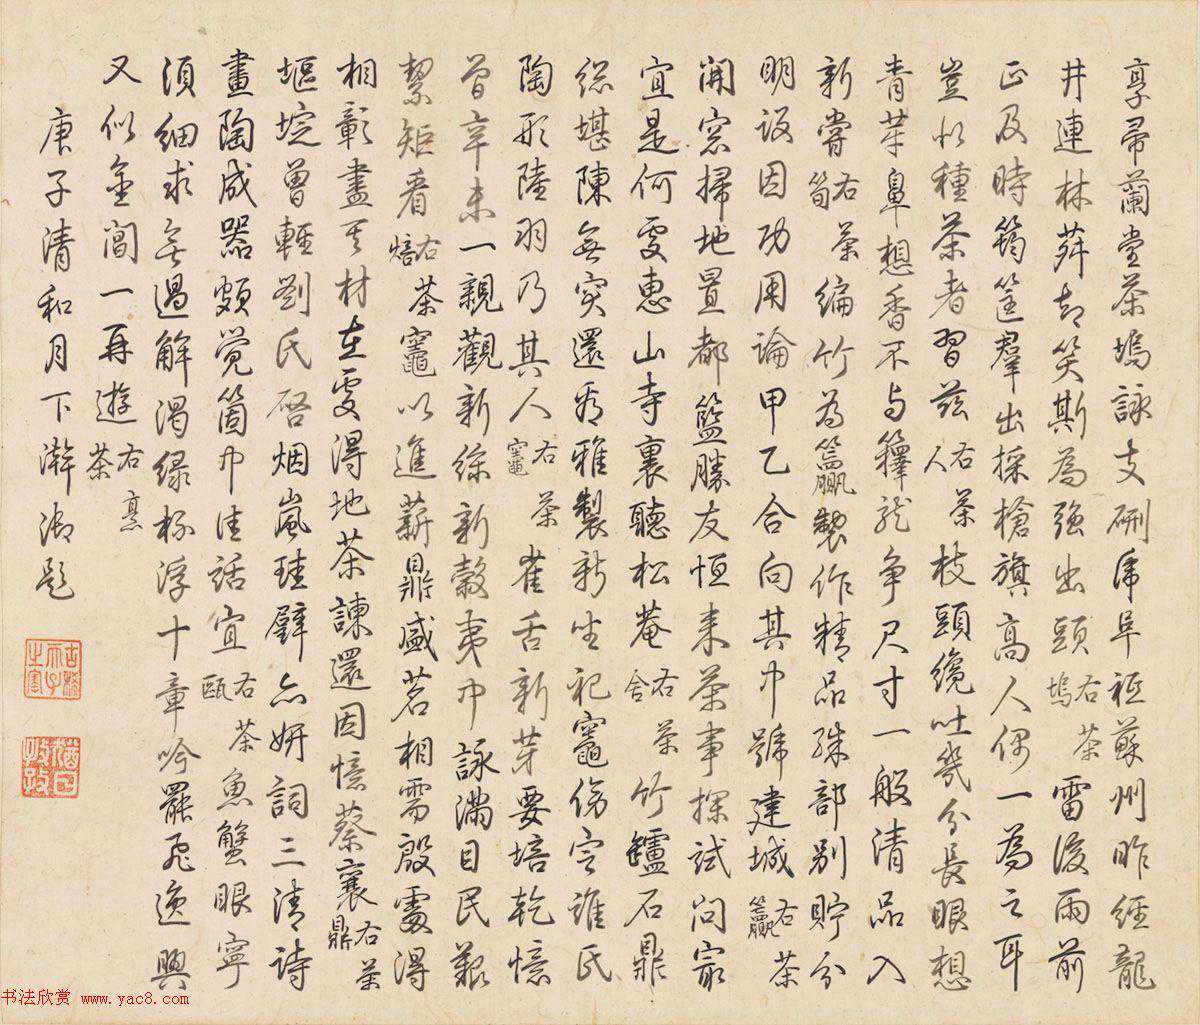 享帚蘭堂茶塢詠支硎虎阜祗蘇州昨經龍
井連林却笑斯為強出頭右茶塢雷後雨前
正及時筠筐羣出採槍旗高人偶一為之耳
豈似種茶者習茲右茶人枝頭纔吐幾分長眼想
青芽鼻想香不与籜龍爭尺寸一般清品入
新嘗右茶筍編竹為籯製作精品殊部別貯分
明設因功用論甲乙合向其中號建城右茶籯
開窓掃地置都籃勝友恒来茶事探試問寂
宜是何處惠山寺裏聽松菴右茶舍竹鑪石鼎
総堪陳無突還看雅製新坐祀竈傍定誰氏
陶形陸羽乃其人右茶竈雀舌新芽要培乾憶
曾辛未一親觀新絲新穀夷中詠滿目民艱
絜矩看右茶焙竈以進薪鼎盛茗相需殷處得
相彰盡其材在處得地茶諫還因憶蔡襄右茶鼎
堰埞曾輕劉氏啓烟嵐珪璧亦妍詞三清詩
畫陶成器頗覺箇中佳話宜右茶甌魚蟹眼寧
須細求無過解渴綠杯浮十章吟罷飛逸興
又似金閶一再遊右烹茶
庚子清和月下澣御題
古稀天子之寶
猶日孜孜
书法欣赏 www.yac8.com